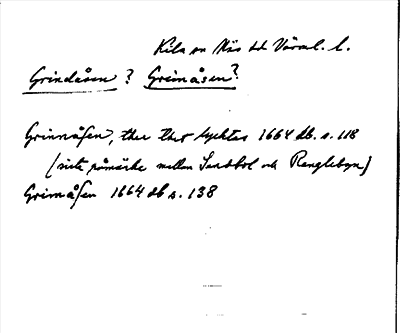 Kila sn Näs hd Värml. l.
Grindåsen? Greinåsen?
Grinnåsen, thee thet 1664 db. s. 118
(sista råmärke mellan Sandbol och Ränglebyn)
Greinåsen 1664 db s. 138